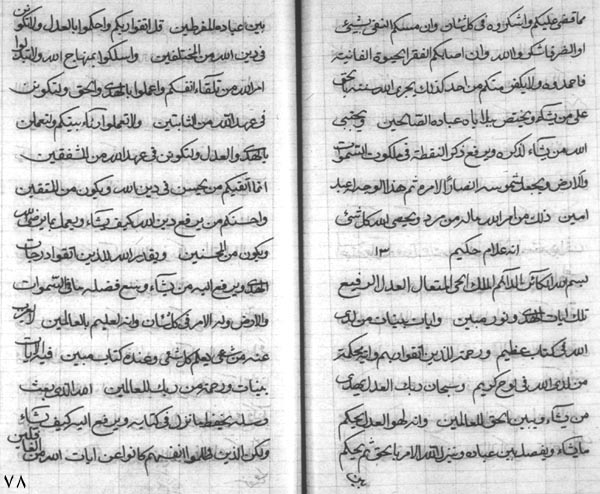 مما قضى عليكم واشكروه في كل شان وان مسكم النفع بشيء
او الضر فاشكروا الله وان اصابكم الفقر بالحيوة الفانية
فاحمدوه ولا يكفر منكم من احد كذلك يجزي الله بالحق
على من يشكر ويختص ببلاياه عباده الصالحين ويجتبي
الله من يشاء لذكره ويرفع ذكر النقطة في ملكوت السموات
والارض ويجعل انصار الامره ثم هذا الوجه
امين ذلك من امر الله ماله من مرد ويحصي الله كل شيء
انه علام حكيم ١٣
بسم الله الكائن الدائم الملك الحي المتعال العدل الرفيع
تلك ايات الهدى ونور مبين وايات بينات من لدى
الله في كتاب عظيم ورحمة للذين اتقوا ربهم وانه لحكمة
من لدى الله في لوح كريم وسبحان ربك العدل يهدي
من يشاء ويبين الحق للعالمين وانه لهو العدل يحكم
ما يشاء ويفصل بين عباده وينزل الامر بالحق ثم يحكم
بين
بين عباده المفرطين قل اتقوا ربكم واحكموا بالعدل ولا تكونن
في دين الله من المختلفين واسلكوا بمنهاج الله ولا تبدلوا
امر الله من تلقاء انفسكم واعملوا بالهدى والحق ولتكونن
في عهد الله من الثابتين ولا تعملوا اراء بينكم ولتعملن
بالهدى والعدل ولتكونن في عهد الله من المشفقين
انما اتقيكم من يحسن في دين الله ويكون من المتقين
واحسنكم من يرفع دين الله كيف يشاء ويعمل بما يرضى الله
ويكون من المحسنين ويقدر الله للذين اتقوا درجات
الهدى ويرفع اليه من يشاء ويسع فضله ما في السموات
والارض وله الامر في كل شان وانه لعليم بالعالمين لا يعزب
عنه من شيء يعلم كل شيء وعنده كتاب مبين فيه ايات
بينات ورحمة من ربك للعالمين الله الذي يبعث
رسله ليحفظ ما نزل في كتابه ويرفع اليه كيف يشاء
ولكن الذين ظلموا انفسهم كانوا عن ايات الله من الغافلين
٧٨